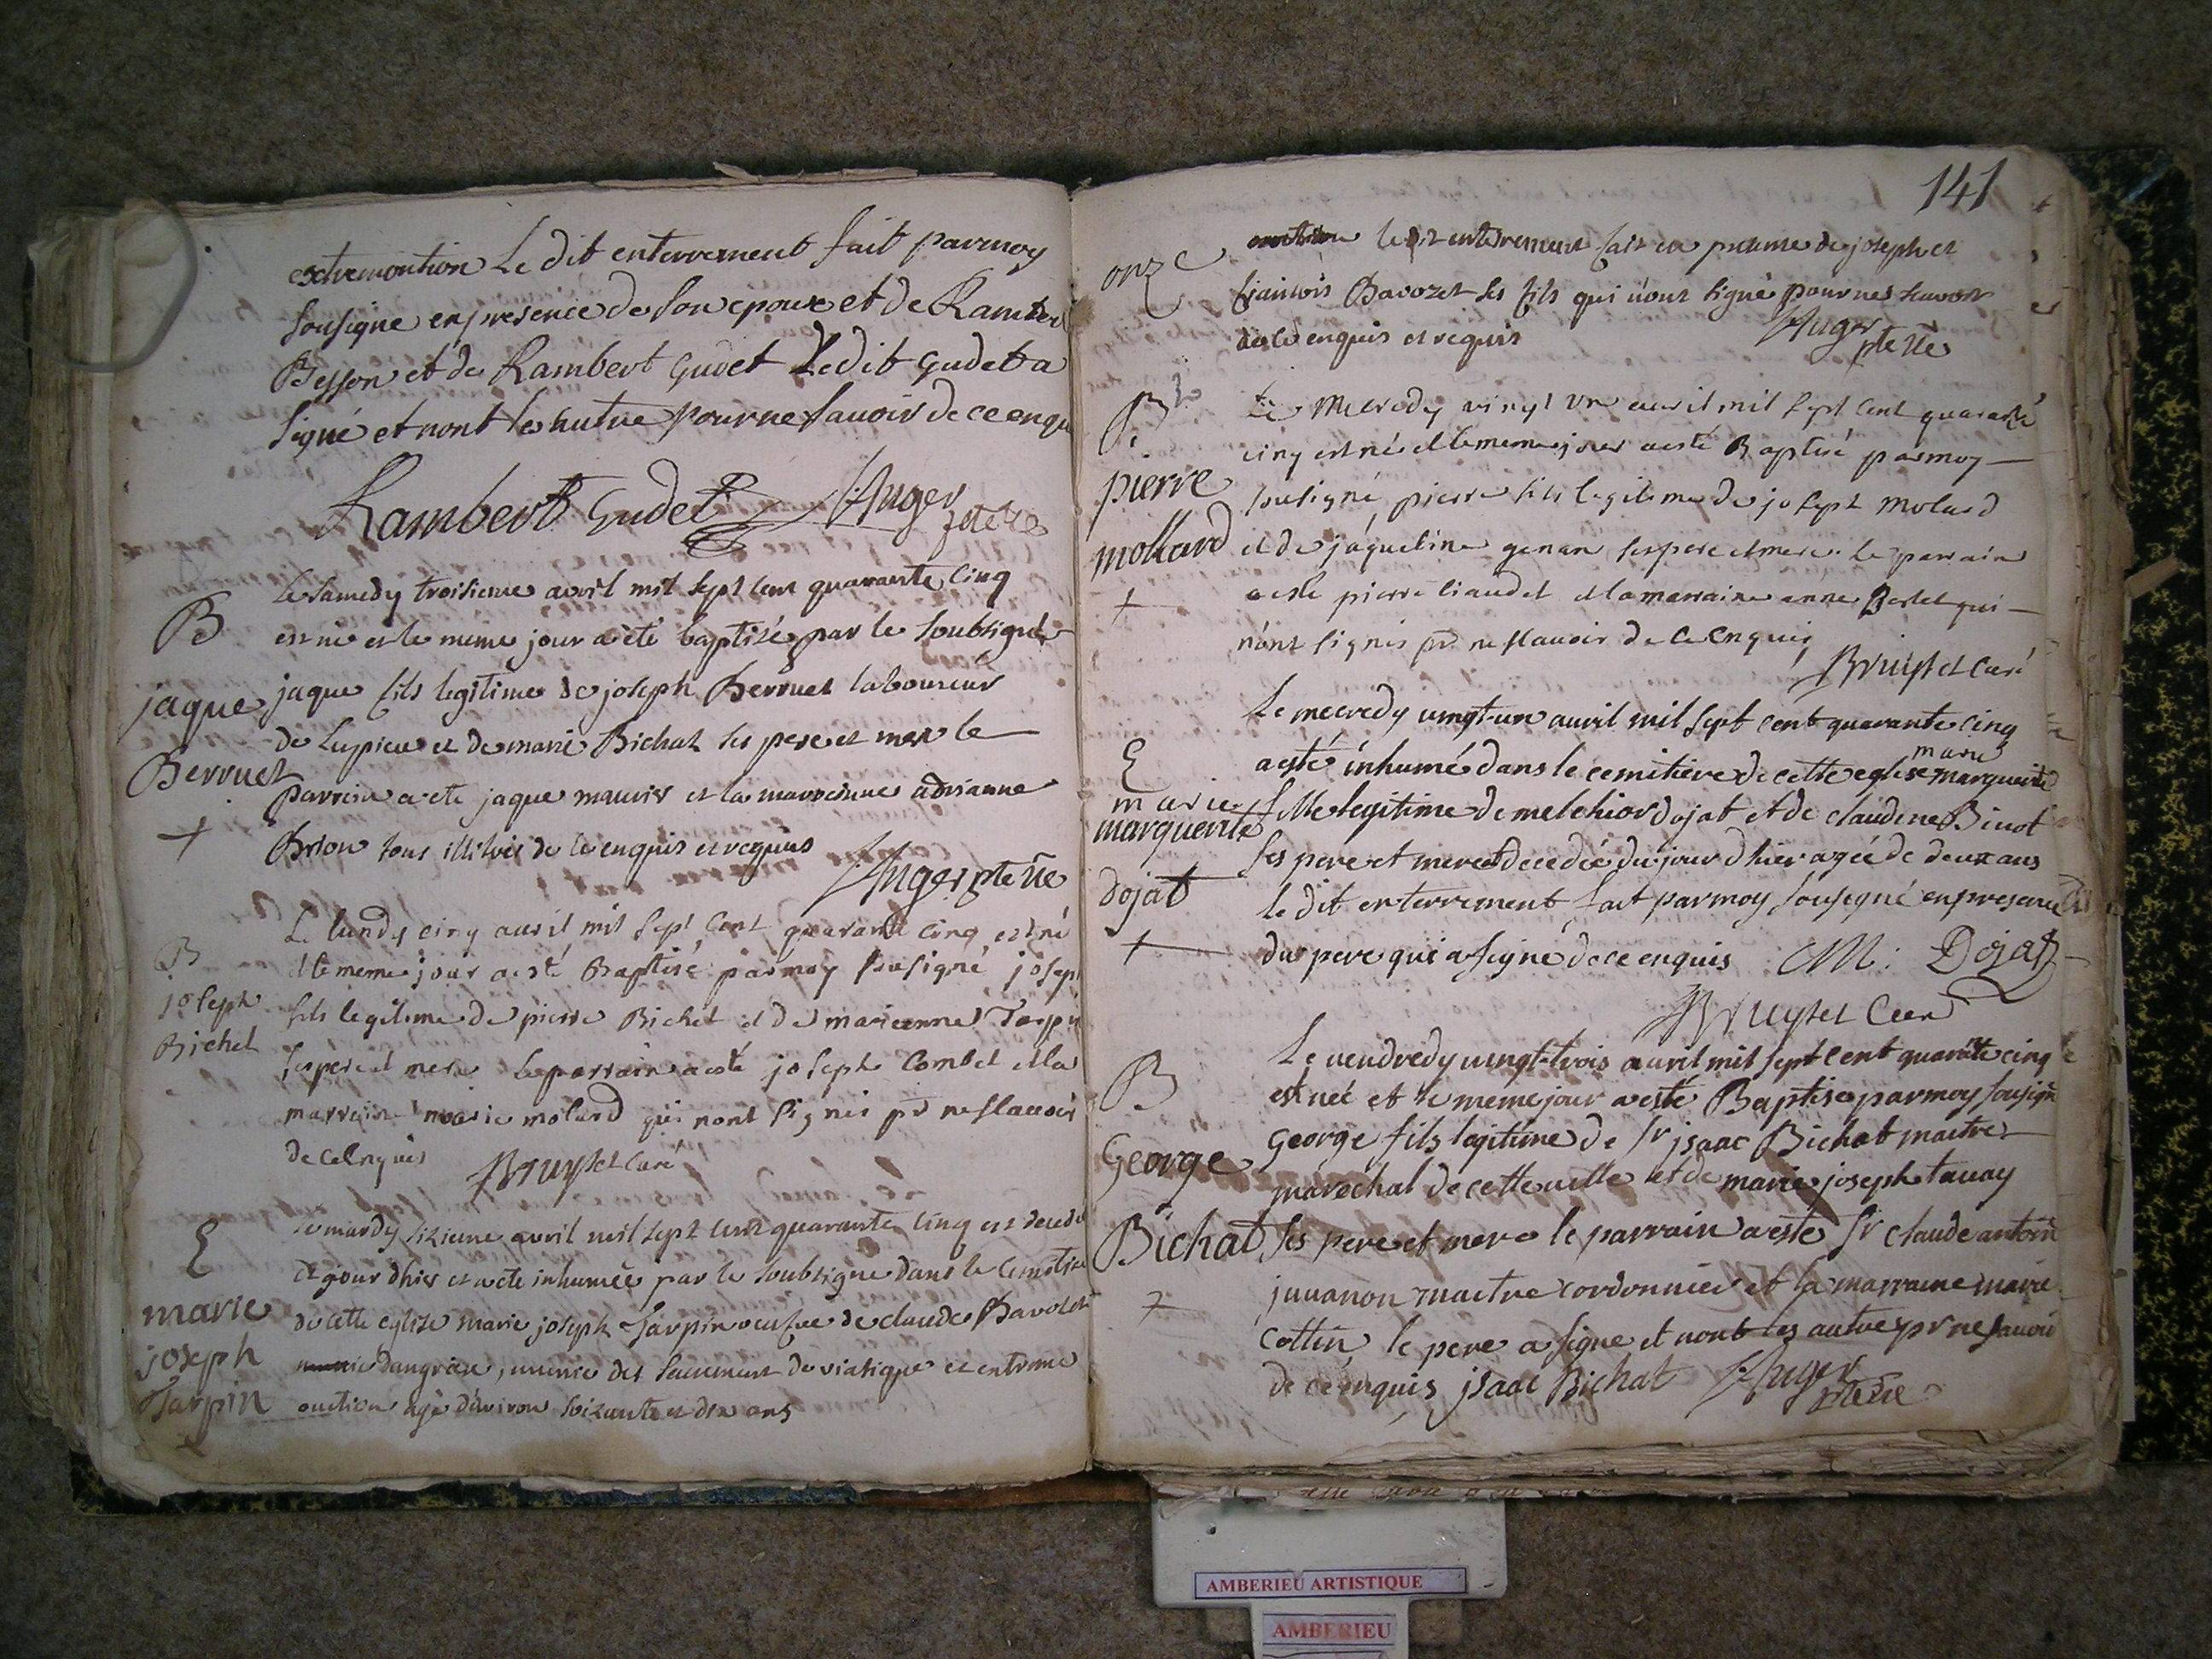 extremontion Le dit enterrement fait parmoy
sousigne enpresence de son epoux et de Ramber
Besson et de Rambert Gudet Ledit Gudet a
signé et nont les hutre pour ne savoir de ce enqu
Rambert Gudet Auger
Le samedy troisieme avril mil sept cent quarante cinq
B
est né et le meme jour a été baptisé par le soubsigné
jaque
jaque fils legitime de joseph Berruet laboureur
de Lupieu et de marie Bichat ses pere et mere le
Berruet
parrein a ete jaque mauris et la marreinne adrianne
+
Brion tous illitrés de ce enquis et requis
Auger ptre vre
Le lundy cinq auril mil sept cent quarante cinq est né
B
et le meme jour a esté Baptisé parmoy sousigné josep
joseph
fils legitime de pierre Bichet et de marieanne Tarpi
Bichet
ses pere et mere Le parrain a esté joseph Combet et la
marraine marie molard qui nont signés pr ne scauoir
de ce Enquis Bruyset Curé
Le mardy sixieme avril mil sept cent quarante cinq est decedé
E
du jour dhier et a ete inhumée par le soubsigne dans le cemetiere
marie
de cette eglise marie joseph Tarpin veufue de claude Bavozet
joseph
dangriere, munie des sacrement de viatique et extreme
Tarpin
onction agé d'environ soixante et dix ans
141
onze
onction le dit enterrement fait en presence de joseph et
francois Bavozet ses fils qui n'ont signé pour ne scavoir
de ce enquis et requis
Auger ptre vre
B
Le Mecredy vingt un auril mil sept cent quarante
cinq est né et le meme jour a esté Baptisé parmoy
pierre
sousigné pierre fils legitime de joseph Molard
mollard
et de jaqueline genan ses pere et mere. Le parrain
+
a esté pierre liaudet et la marraine anne Bertet qui
n'ont signés pr ne scauoir de ce Enquis
Bruyset Curé
Le mecredy vingt-un auril mil sept cent quarante cinq
E
a esté inhumé dans le cemitiere de cette eglise marie marguerite
marie
marguerite
fille legitime de melchior dojat et de claudine Binot
ses pere et mere et decedée du jour dhier agée de deux ans
dojat
le dit enterrement fait parmoy sousigné enpresence
+
du pere qui a signé de ce enquis M: Dojat
Bruyset Curé
Le vendredy vingt-trois auril mil sept cent quarante cinq
B
est neé et le meme jour a esté Baptise parmoy sousigné
George
george fils legitime de Sr jsaac Bichat maitre
marechal de cette ville et de marie joseph tavay
Bichat
ses pere et mere le parrain a este Sr claude antoin
+
juuanon maitre cordonnier et la marraine marie
cottin, le pere a signe et nont les autres pr ne sauoir
de ce enquis jsaac Bichat Auger ptre vre
AMBERIEU ARTISTIQUE
AMBERIEU